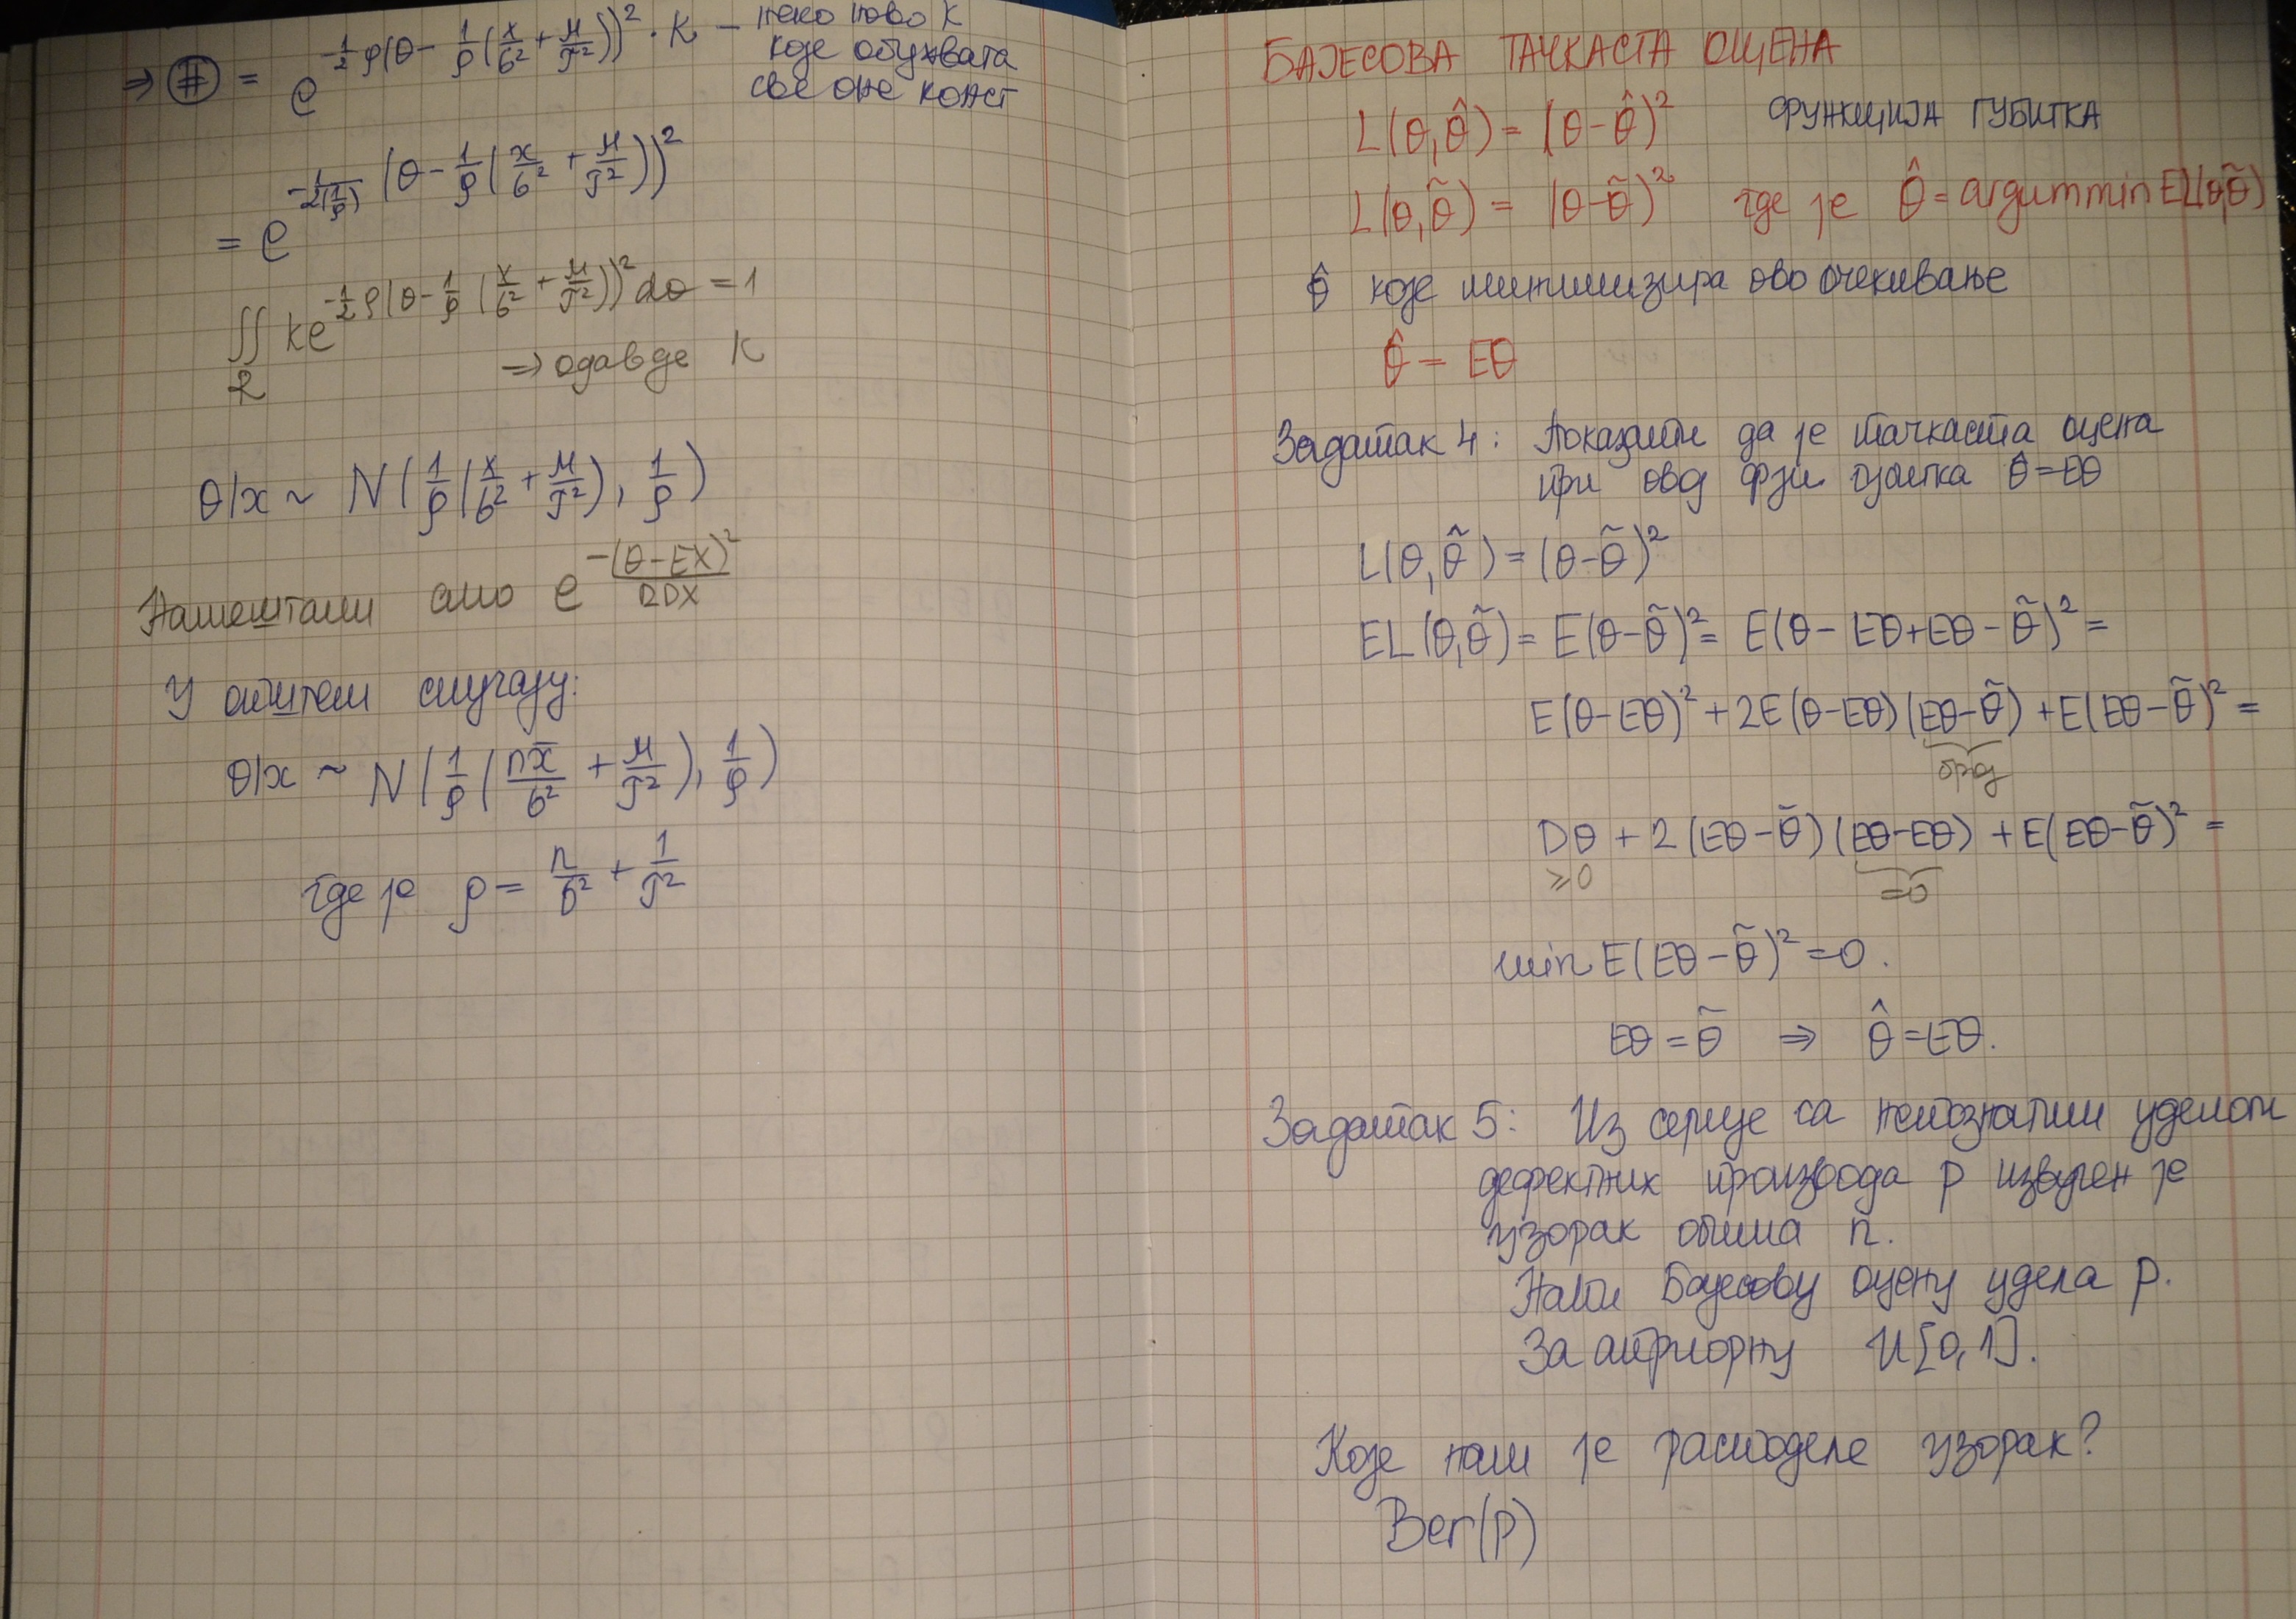 ⇒ (#) = e^{-1/2 ρ(θ - 1/ρ (x/σ² + μ/τ²))²} · K – неко ново K
које обухвата
све оне конст
= e^{-1/(2(1/ρ)) (θ - 1/ρ (x/σ² + μ/τ²))²}
∬_R k e^{-1/2 ρ(θ - 1/ρ (x/σ² + μ/τ²))²} dθ = 1
⇒ одавде K
θ|x ~ N(1/ρ (x/σ² + μ/τ²), 1/ρ)
Наместили смо e^{-(θ-EX)²/2DX}
У општем случају:
θ|x ~ N(1/ρ (nx̄/σ² + μ/τ²), 1/ρ)
где је ρ = n/σ² + 1/τ²
БАЈЕСОВА ТАЧКАСТА ОЦЕНА
L(θ,θ̂) = (θ-θ̂)² ФУНКЦИЈА ГУБИТКА
L(θ,θ̃) = (θ-θ̃)² где је θ̂ = argummin EL(θ,θ̃)
θ̂ које минимизира ово очекивање
θ̂ = Eθ
Задатак 4: Показати да је тачкаста оцена
при овој фји губитка θ̂=Eθ
L(θ,θ̃) = (θ-θ̃)²
EL(θ,θ̃) = E(θ-θ̃)² = E(θ-Eθ+Eθ-θ̃)² =
E(θ-Eθ)² + 2E(θ-Eθ)(Eθ-θ̃) + E(Eθ-θ̃)² =
број
Dθ + 2(Eθ-θ̃)(Eθ-Eθ) + E(Eθ-θ̃)² =
≥0 =0
min E(Eθ-θ̃)² = 0.
Eθ = θ̃ ⇒ θ̂ = Eθ.
Задатак 5: Из серије са непознатим уделом
дефектних производа p извучен је
узорак обима n.
Наћи Бајесову оцену удела p.
За априорну U[0,1].
Које нам је расподеле узорак?
Ber(p)